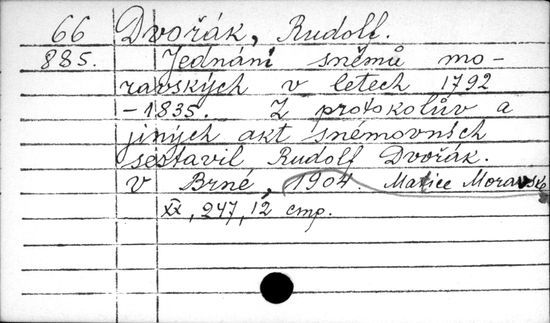 66 Dvořák, Rudolf.
885. Jednání sněmů mo-
ravských v letech 1792
-1835. Z protokolův a
jiných akt sněmovních
sestavil Rudolf Dvořák.
v Brně, 1904. Matice Moravsk
XX, 247, 12 cmp.